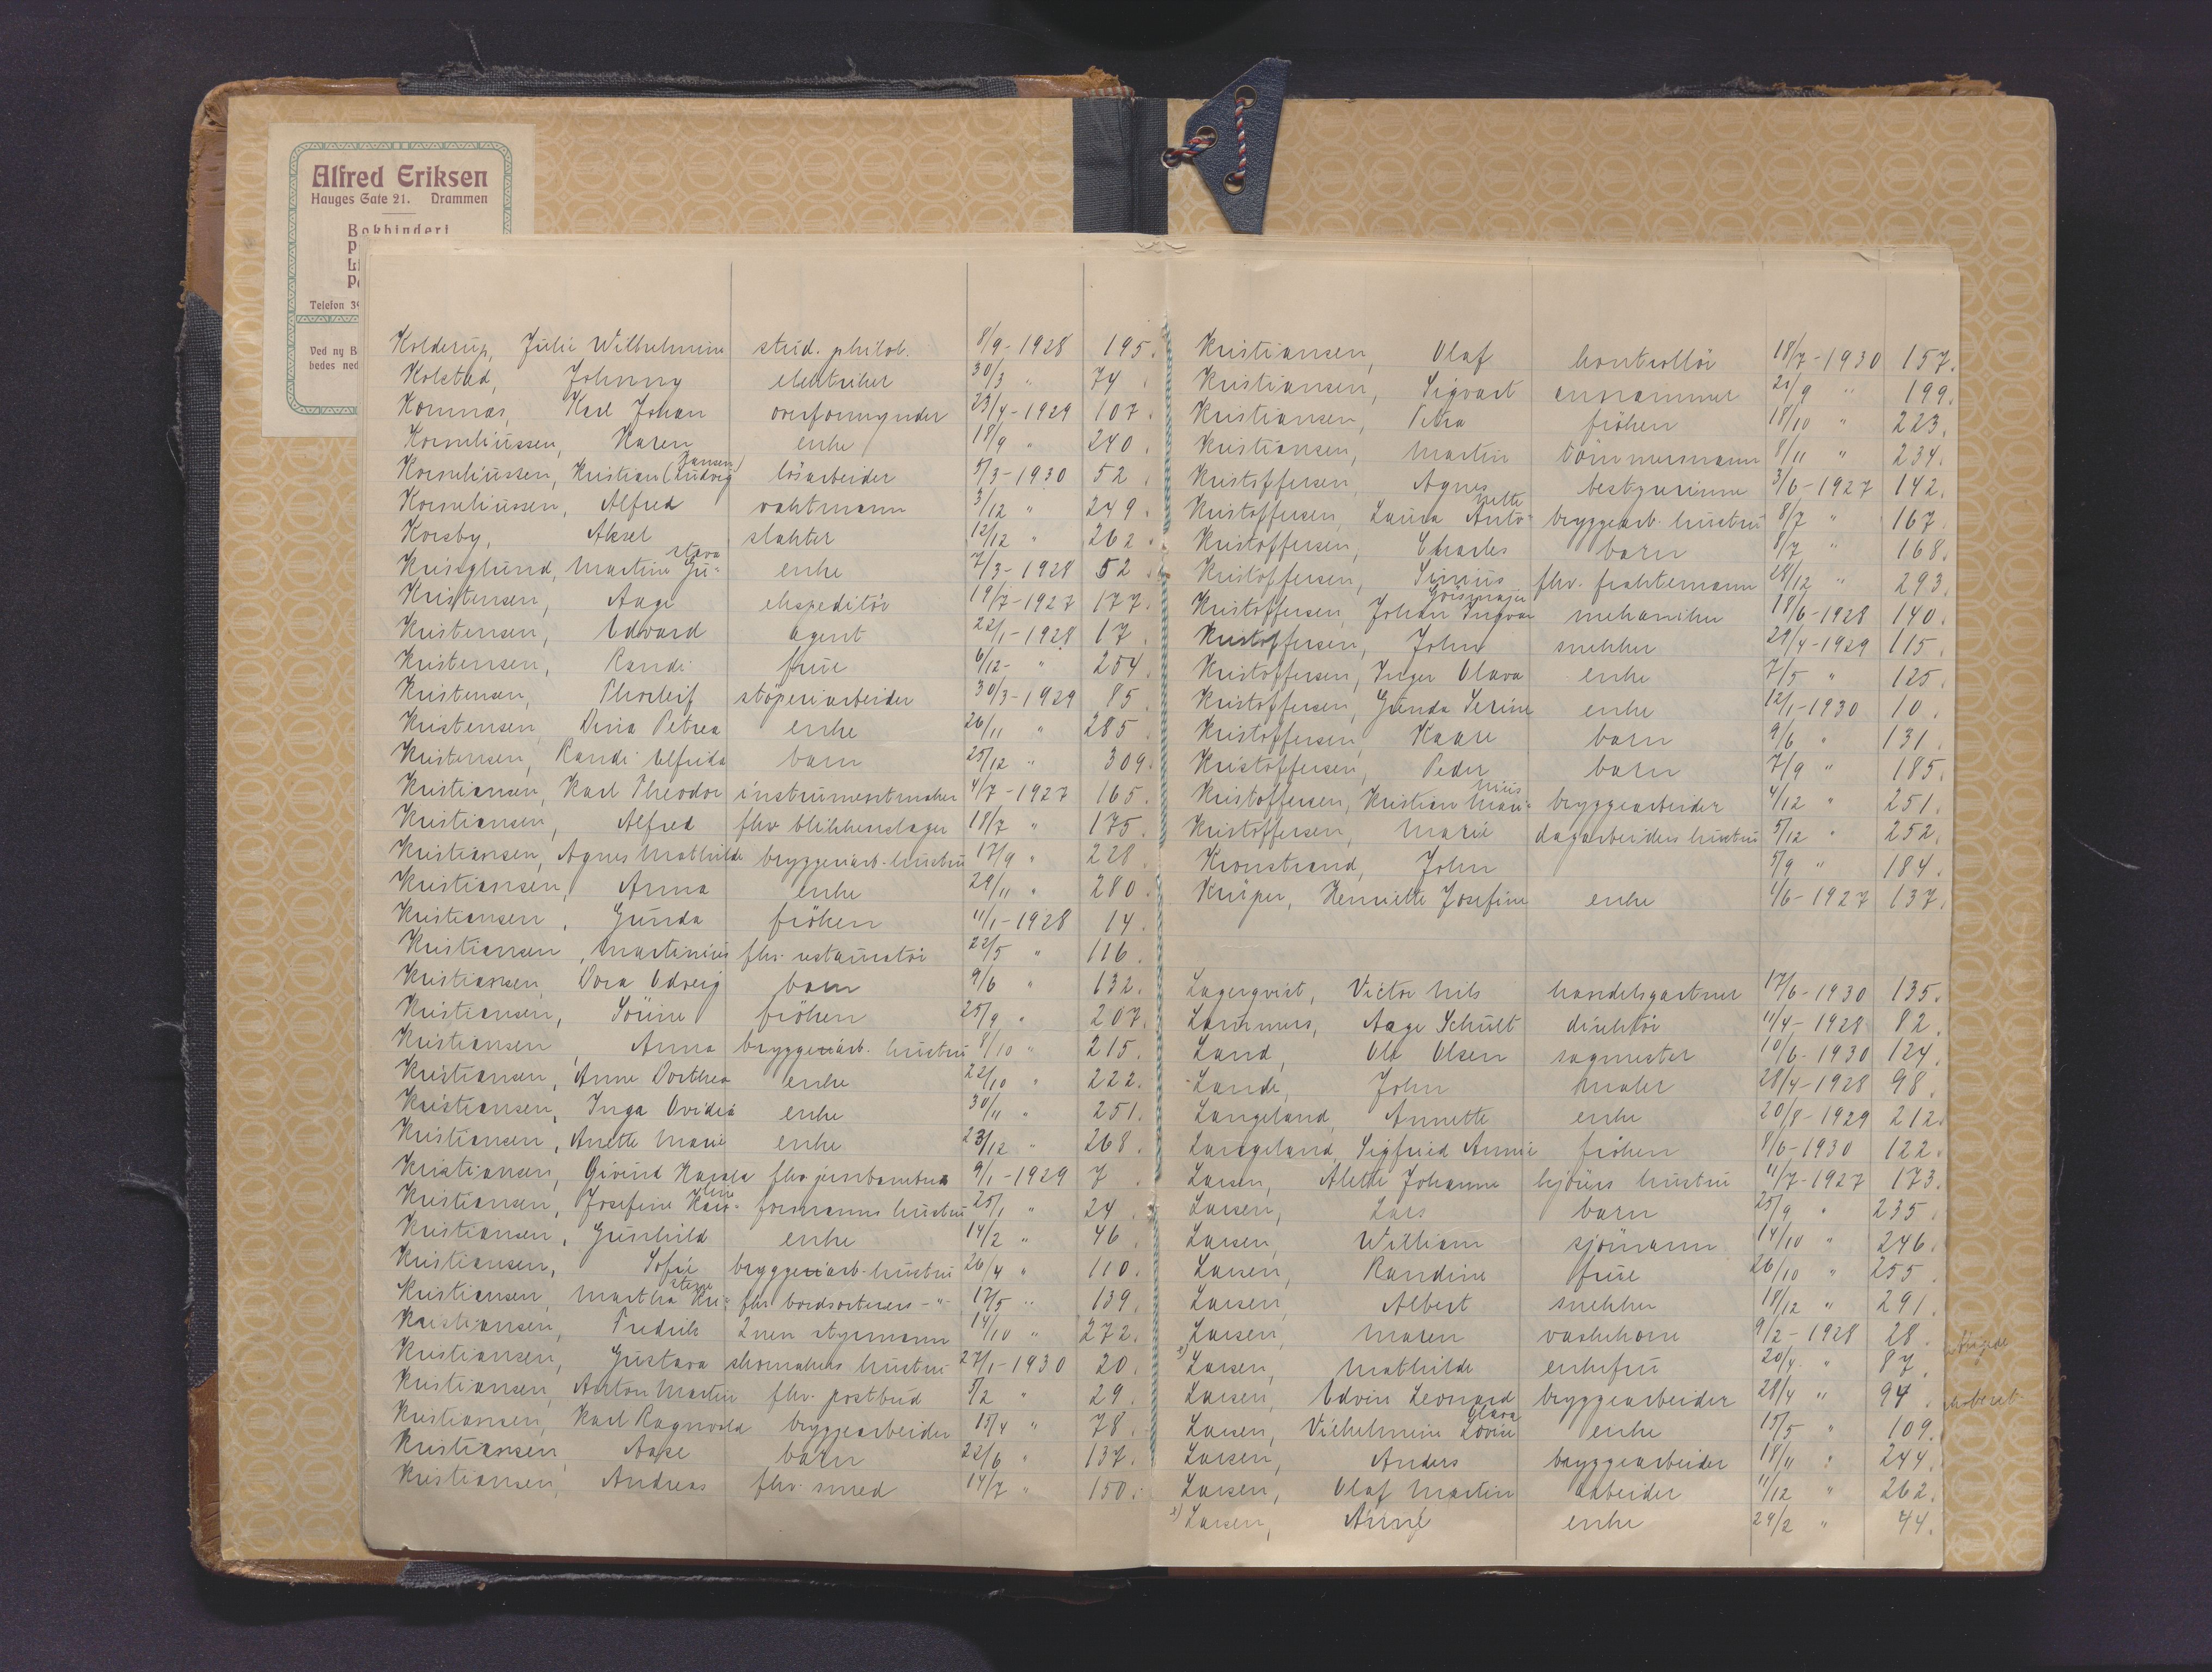 Alfred Eriksen
Hauges Gate 21. Drammen
Bokbinderi
Telefon
Ved ny B
bedes ned
Kolderup, Julie Wilhelmine stud. philol. 8/9-1928 195.
Kolstad, Johnny elektriker 30/3 " 74.
Komnæs, Karl Johan overformynder 23/4-1929 107.
Korneliussen, Karen enke 18/9 " 240.
Korneliussen, Kristian (Ludvig Jansen) løsarbeider 5/3-1930 52.
Korneliussen, Alfred vaktmann 3/12 " 249.
Korsby, Aksel slakter 12/12 " 262.
Krisglund, Martine Gu=stava enke 7/3-1928 52.
Kristensen, Aage ekspeditør 19/7-1927 177.
Kristensen, Edvard agent 22/1-1928 17.
Kristensen, Randi frue 6/12- " 254.
Kristensen, Thorleif støperiarbeider 30/3-1929 85.
Kristensen, Dina Petrea enke 26/11 " 285.
Kristensen, Randi Alfrida barn 25/12 " 309.
Kristiansen, Karl Theodor instrumentmaker 4/7-1927 165.
Kristiansen, Alfred fhv. blikkenslager 18/7 " 175.
Kristiansen, Agnes Mathilde bryggeriarb. hustru 17/9 " 228.
Kristiansen, Anna enke 29/11 " 280.
Kristiansen, Gunda frøken 11/1-1928 14.
Kristiansen, Martinius fhv. restauratør 22/5 " 116.
Kristiansen, Dora Edveig barn 9/6 " 132.
Kristiansen, Sørine frøken 25/9 " 207.
Kristiansen, Anna bryggeriarb. hustru 8/10 " 215.
Kristiansen, Anne Dorthea enke 22/10 " 222.
Kristiansen, Inga Ovidia enke 30/11 " 251.
Kristiansen, Anette Marie enke 23/12 " 268.
Kristiansen, Eivind fhv. 9/1-1929 7.
Kristiansen, Josefine formanns hustru 25/1 " 24.
Kristiansen, Gunhild enke 14/2 " 46.
Kristiansen, Sofie bryggeriarb. hustru 26/4 " 110.
Kristiansen, Martha Kri=stine fhv. bordsorterers -"- 17/5 " 139.
Kristiansen, Fredrik 2nen styrmann 14/10 " 272.
Kristiansen, Gustava skomakers hustru 27/1-1930 20.
Kristiansen, Anton Martin fhv. postbud 5/2 " 29.
Kristiansen, Karl Ragnvald bryggearbeider 15/4 " 78.
Kristiansen, Aase barn 22/6 " 137.
Kristiansen, Andreas fhv. smed 14/7 " 150.
Kristiansen, Olaf kontrollør 18/7-1930 157.
Kristiansen, Sigvart 21/9 " 199.
Kristiansen, Petra frøken 18/10 " 223.
Kristiansen, Martin tømmermann 8/11 " 234.
Kristoffersen, Agnes bestyrerinne 3/6-1927 142.
Kristoffersen, Laura Anto=nette bryggearb. hustru 8/7 " 167.
Kristoffersen, Charles barn 8/7 " 168.
Kristoffersen, Sinius fhv. fraktemann 28/12 " 293.
Kristoffersen, Johan Ingvar mekaniker 18/6-1928 140.
Kristoffersen, John snekker 29/4-1929 115.
Kristoffersen, Inger Olava enke 7/5 " 125.
Kristoffersen, Gunda Serine enke 12/1-1930 10.
Kristoffersen, Kaare barn 9/6 " 131.
Kristoffersen, Peder barn 7/9 " 185.
Kristoffersen, Kristian Mari=nius bryggearbeider 4/12 " 251.
Kristoffersen, Marie dagarbeiders hustru 5/12 " 252.
Kronstrand, John 5/9 " 184.
Krüper, Henriette Josefine enke 4/6-1927 137.
Lagerqvist, Victor Nils handelsgartner 17/6-1930 135.
Lammers, Aage Schult direktør 11/4-1928 82.
Land, Ole Olsen sagmester 10/6-1930 124.
Lande, John maler 28/4-1928 98.
Langeland, Annette enke 20/8-1929 212.
Langeland, Sigfried Annie frøken 8/6-1930 122.
Larsen, Alette Johanne kjørers hustru 11/7-1927 173.
Larsen, Lars barn 25/9 " 235.
Larsen, William sjømann 14/10 " 246.
Larsen, Randine frue 26/10 " 255.
Larsen, Albert snekker 18/12 " 291.
Larsen, Maren vaskekone 9/2-1928 28.
x) Larsen, Mathilde enkefru 20/4 " 87.
Larsen, Edvin Leonard bryggearbeider 28/4 " 94.
Larsen, Vilhelmine Lovise Olava enke 15/5 " 109.
Larsen, Anders bryggearbeider 18/11 " 244.
Larsen, Olaf Martin arbeider 11/12 " 262.
x) Larsen, Anne enke 24/2 " 44.